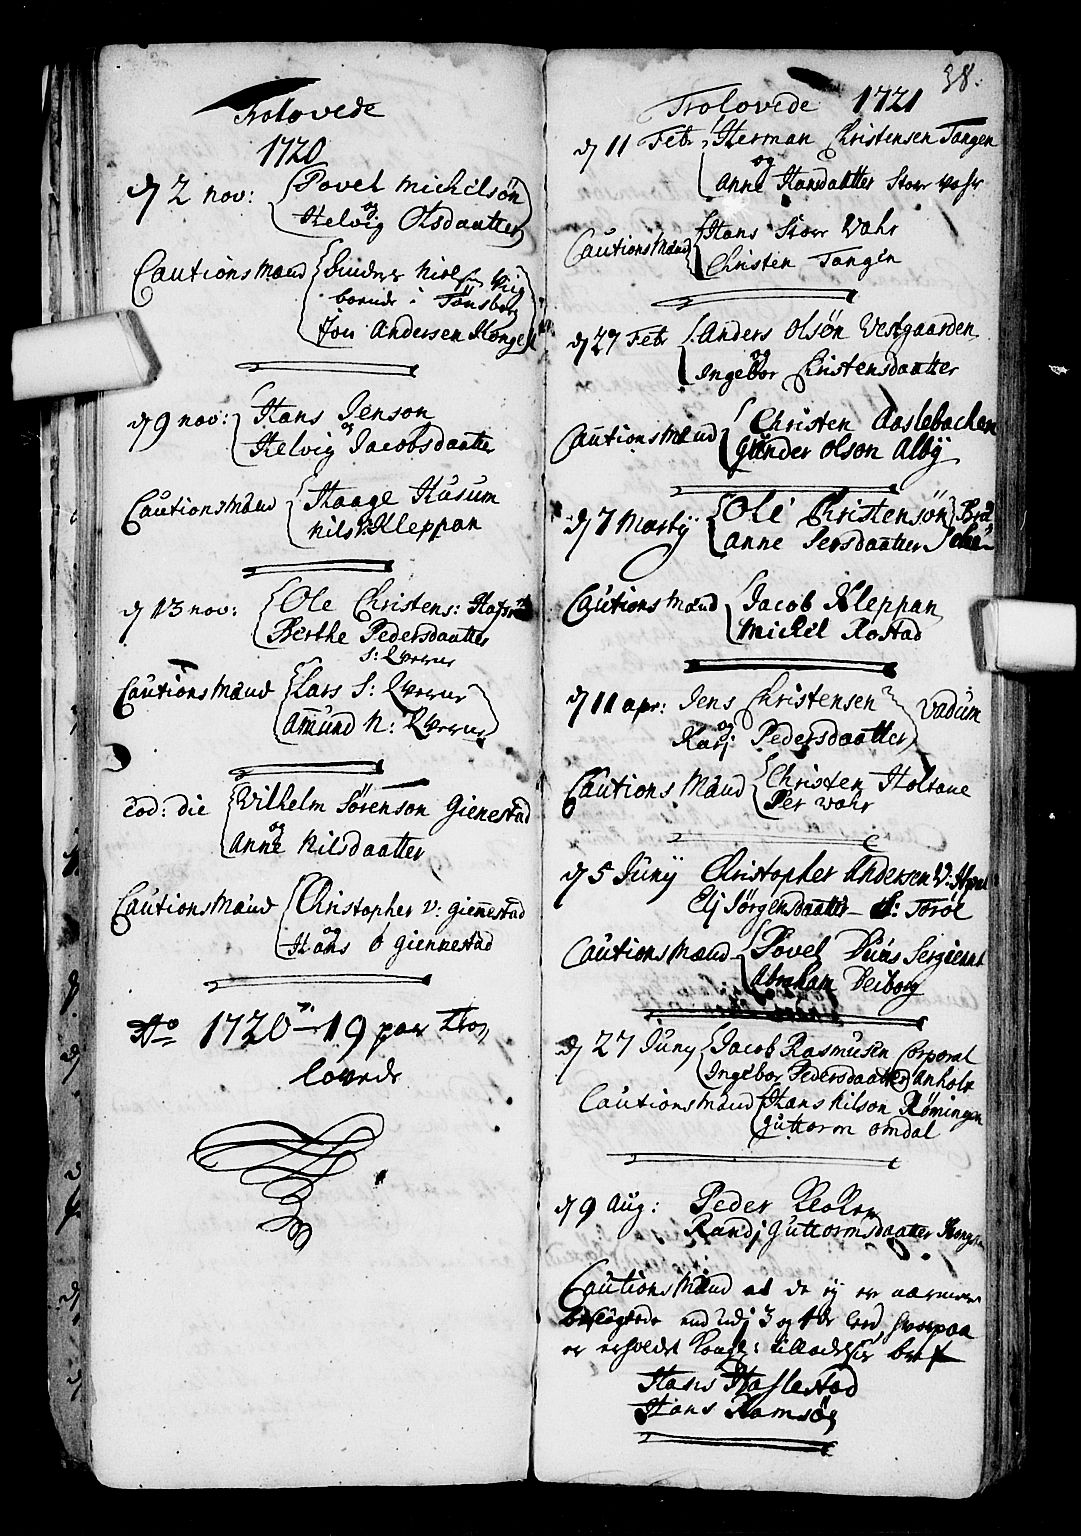 Trolovede
1720
d 2 nov: Povel Michelsøn
og
Helvig Olsdaatter
Cautions Mænd
boende i Tønsberg
Jon Andersen Konge
d 9 nov: Hans Jenson
og
Helvig Jacobsdaatter
Cautions Mænd Haage Husum
Nils Kleppan
d 13 nov: Ole Christens:
Berthe Pedersdaatter
Cautions Mænd Lars S:
Amund N:
Eod: die Vilhelm Sørenson Giennestad
og
Anne Nilsdaatter
Cautions Mænd Christopher v: Giennestad
og
Hans ø Giennestad
Ao 1720 — 19 paar Tro
lovede
38.
Trolovede 1721
d 11 Febr Herman Christensen Tangen
og
Anne Hansdaatter Store Vahr
Cautions Mænd Hans Store Vahr
Christen Tangen
d 27 Febr Anders Olsøn Vestgaarden
og
Ingebor Christensdaatter
Cautions Mænd Christen Aaslebachen
Gunder Olson Alby
d 7 Martij Ole Christensøn
Anne Iversdaatter
Cautions Mænd Jacob Kleppan
Michel Rostad
d 11 apr: Jens Christensen Vadum
og
Karj Pedersdaatter
Cautions Mænd Christen Holtane
Per Vahr
d 5 Junij Christopher Andersen
Elj Jørgensdaatter
Cautions Mænd Povel Duus Sergient
Abraham Deiborg
d 27 Junij Jacob Rasmusen Corporal
Ingebor Pedersdaatter Anholt
Cautions Mænd Hans Nilson Røminger
Guttorm Omdal
d 9 Aug: Peder
Randj Guttormsdaatter
Cautions Mænd at de ej er nærmere
besvogrede end udj 3 og 4de Leed, hvorpaa
er erholdet Kongl: tilladelsis bref
Hans Haslestad
Hans Ramsøn